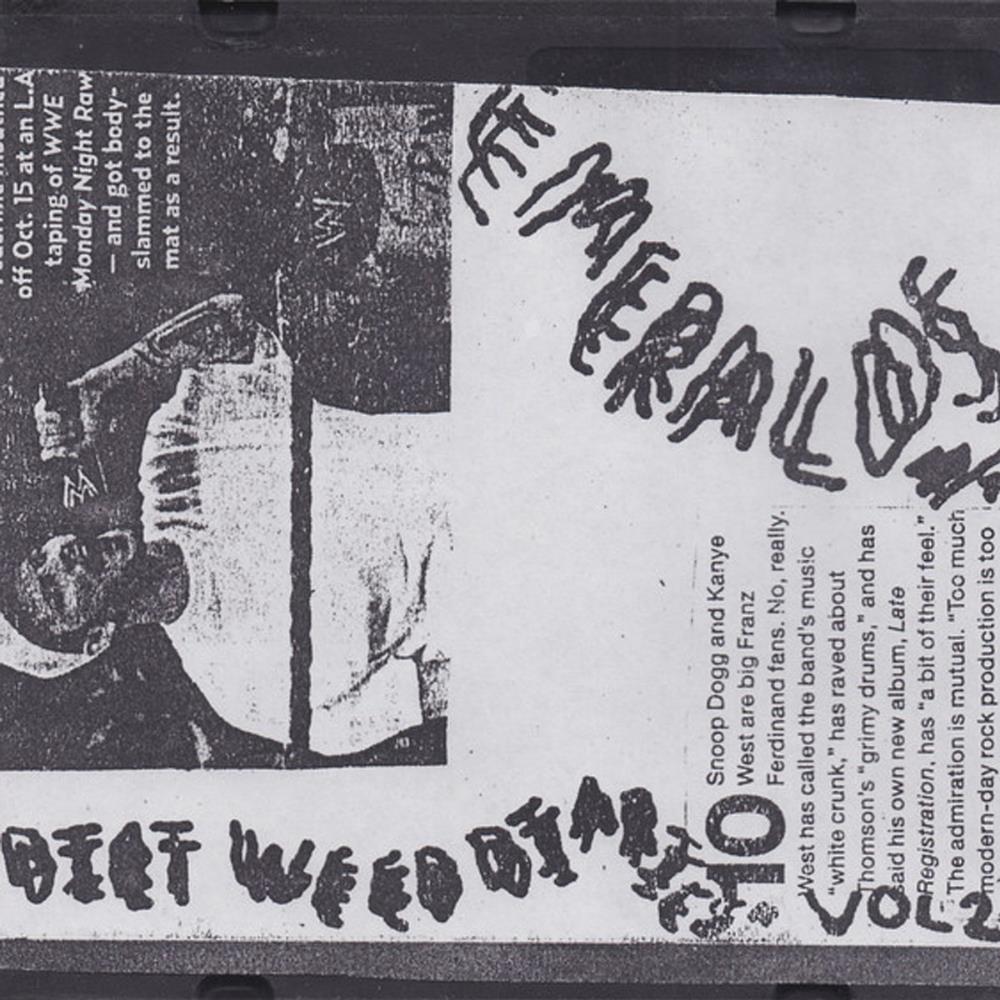 off Oct. 15 at an L.A
taping of WWE
Monday Night Raw
— and got body-
slammed to the
mat as a result.
EMERALD
10
Snoop Dogg and Kanye
West are big Franz
Ferdinand fans. No, really.
West has called the band's music
"white crunk," has raved about
Thomson's "grimy drums," and has
said his own new album, Late
Registration, has "a bit of their feel."
The admiration is mutual. "Too much
modern-day rock production is too
WEED DIARIES
VOL 2